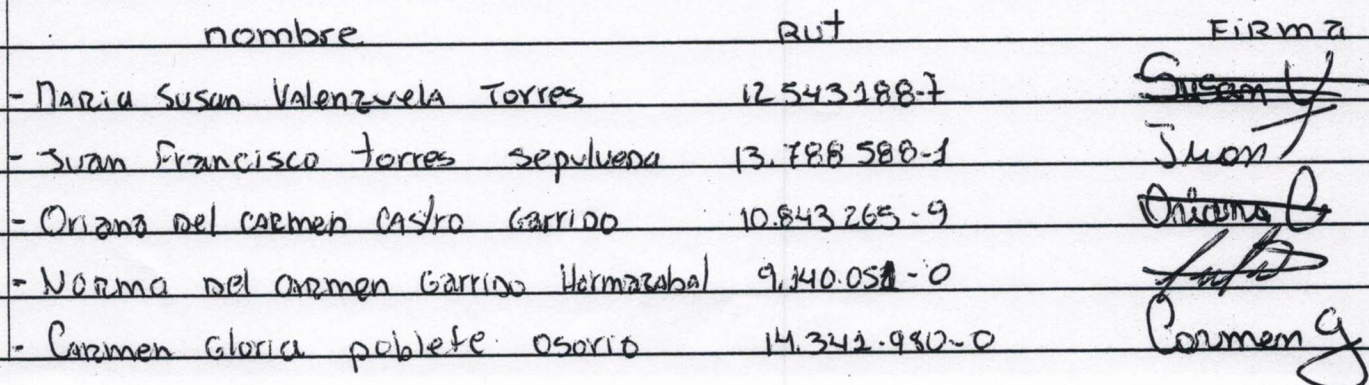 nombre Rut FiRma
- Maria Susan Valenzuela Torres 12543188-7 Susan V
- Juan Francisco torres sepulveda 13.788588-1 Juan
- Oriana Del carmen Castro Garrido 10.843265-9 Oriana C
- Norma Del carmen Garrido Hormazabal 9.140.051-0
- Carmen Gloria poblete osorio 14.342.980-0 Carmen G